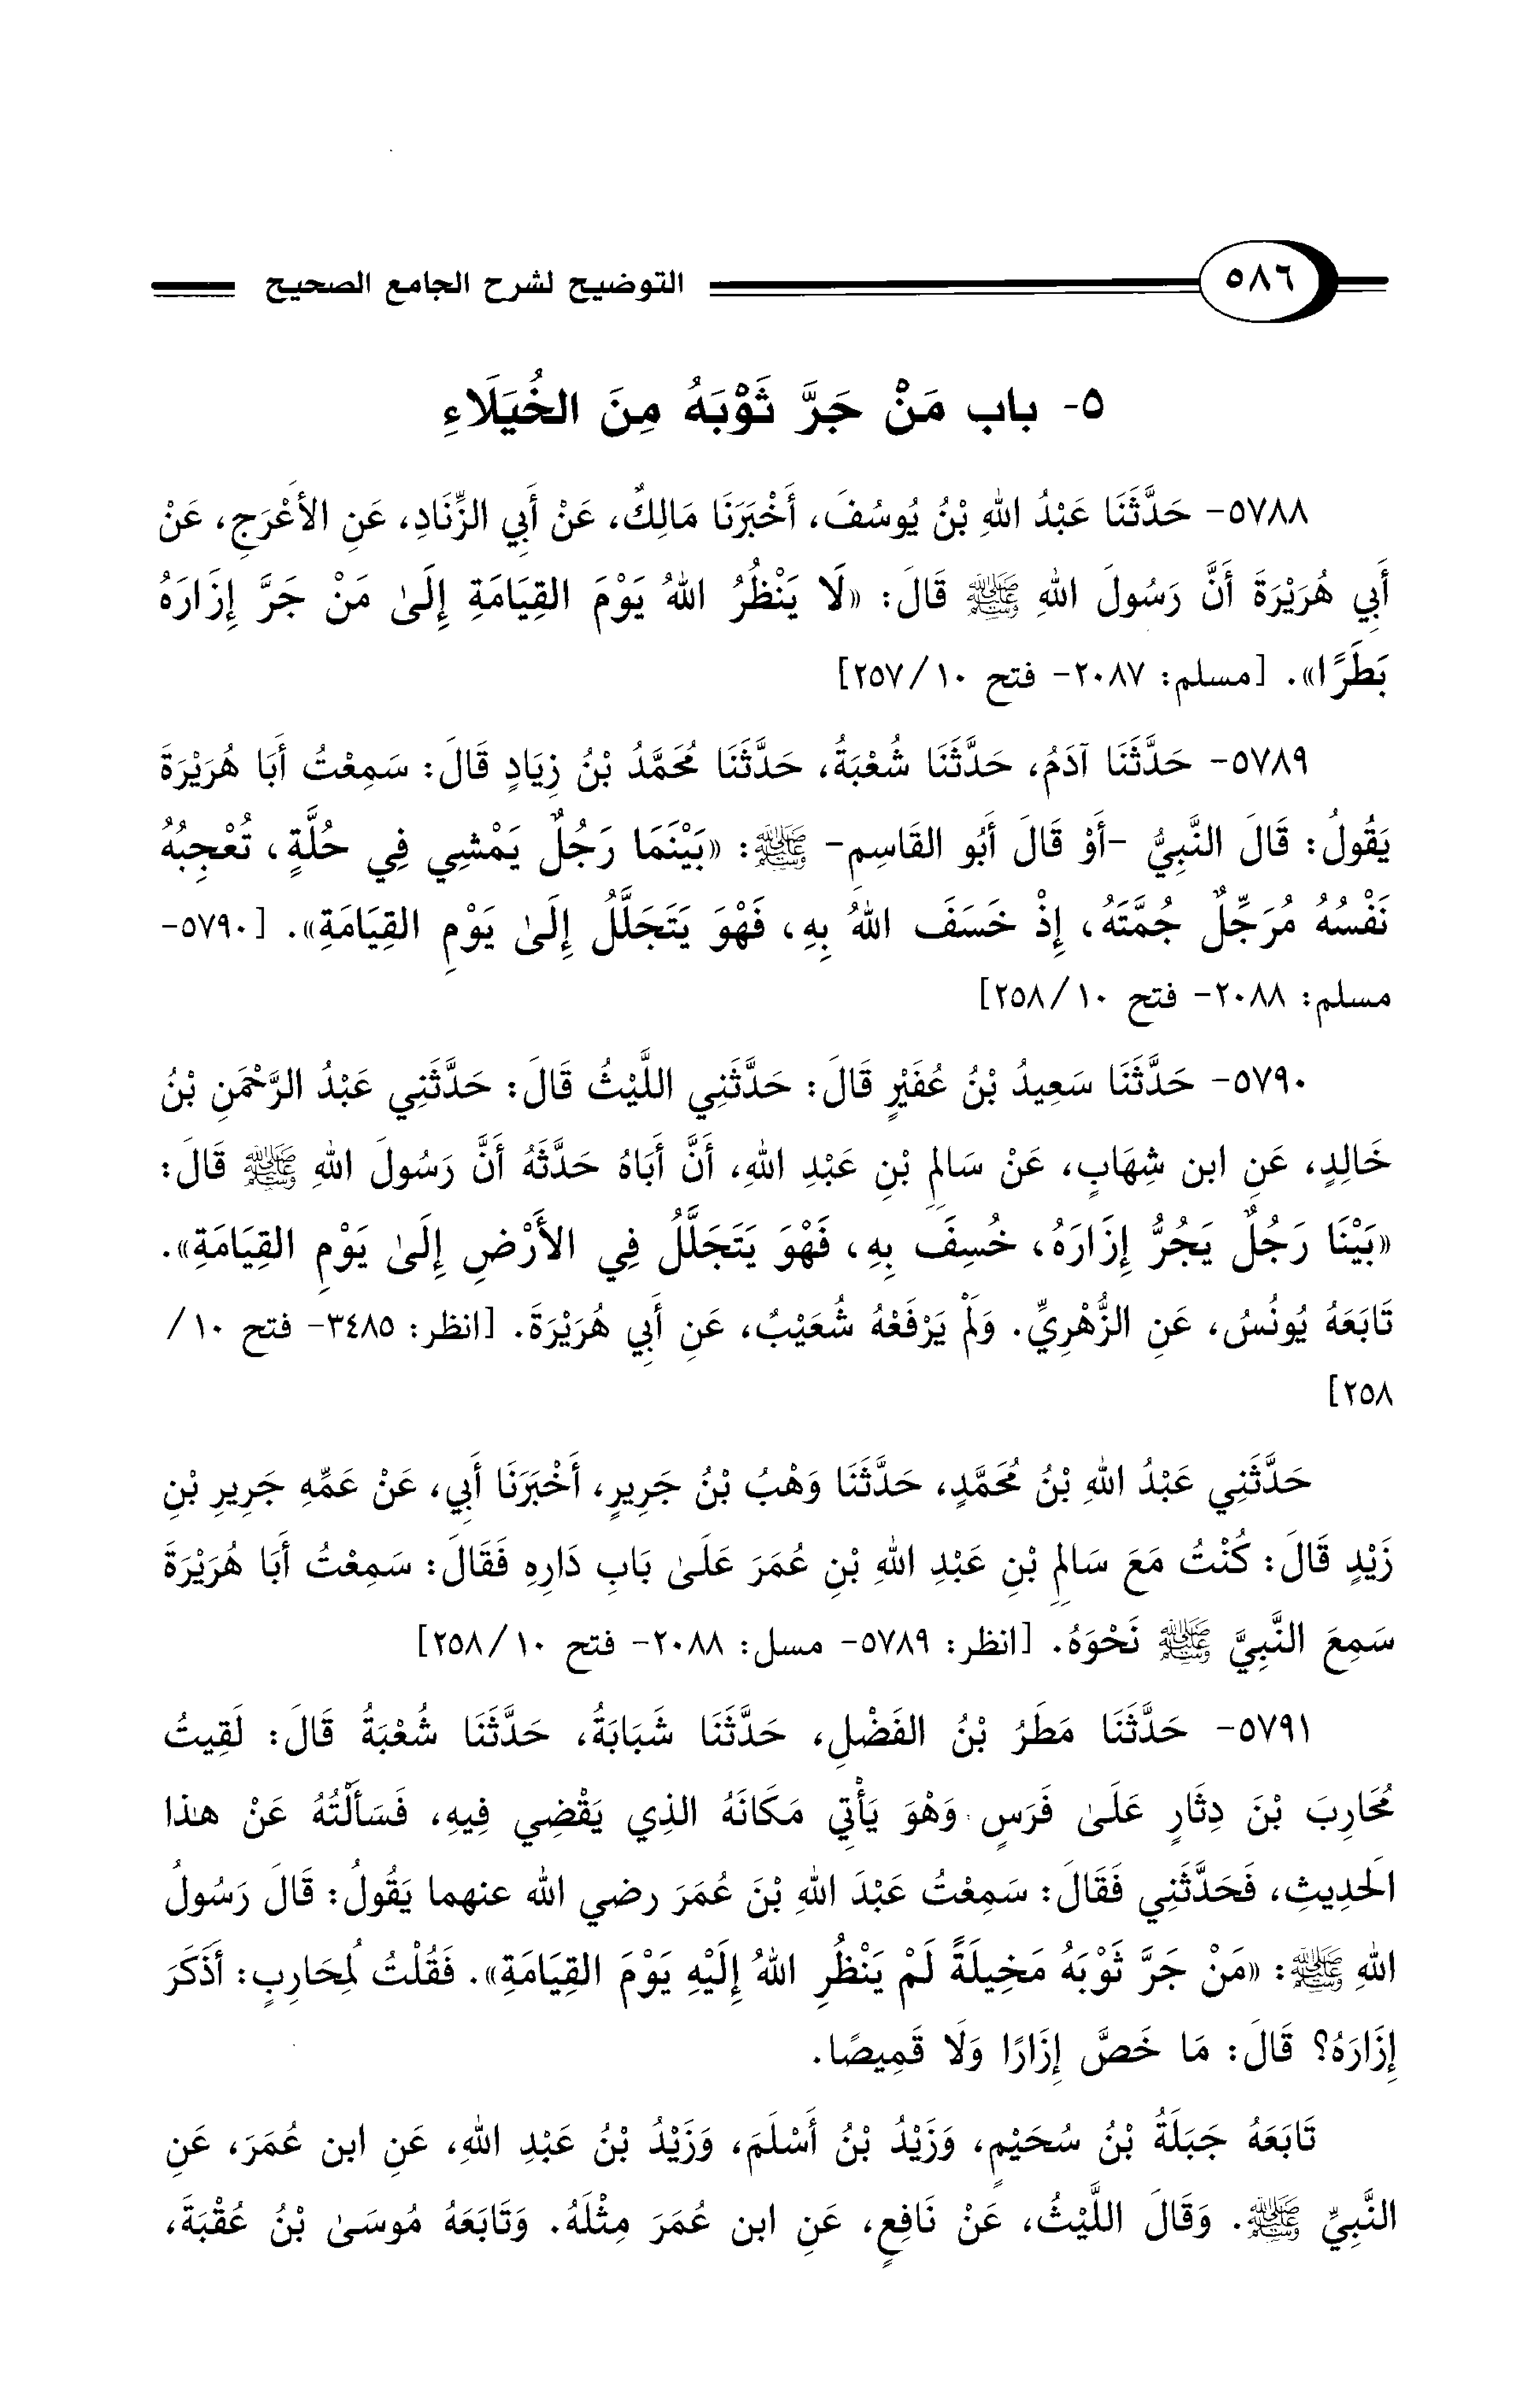 ٥٨٦ التوضيح لشرح الجامع الصحيح
٥- باب مَنْ جَرَّ ثَوْبَهُ مِنَ الخُيَلَاءِ
٥٧٨٨- حَدَّثَنَا عَبْدُ اللهِ بْنُ يُوسُفَ، أَخْبَرَنَا مَالِكٌ، عَنْ أَبِي الزِّنَادِ، عَنِ الأَعْرَجِ، عَنْ
أَبِي هُرَيْرَةَ أَنَّ رَسُولَ اللهِ ﷺ قَالَ: «لَا يَنْظُرُ اللهُ يَوْمَ القِيَامَةِ إِلَىٰ مَنْ جَرَّ إِزَارَهُ
بَطَرًا». [مسلم: ٢٠٨٧- فتح ١٠/ ٢٥٧]
٥٧٨٩- حَدَّثَنَا آدَمُ، حَدَّثَنَا شُعْبَةُ، حَدَّثَنَا مُحَمَّدُ بْنُ زِيَادٍ قَالَ: سَمِعْتُ أَبَا هُرَيْرَةَ
يَقُولُ: قَالَ النَّبِيُّ -أَوْ قَالَ أَبُو القَاسِمِ- ﷺ: «بَيْنَمَا رَجُلٌ يَمْشِي فِي حُلَّةٍ، تُعْجِبُهُ
نَفْسُهُ مُرَجِّلٌ جُمَّتَهُ، إِذْ خَسَفَ اللهُ بِهِ، فَهْوَ يَتَجَلَّلُ إِلَىٰ يَوْمِ القِيَامَةِ». [٥٧٩٠-
مسلم: ٢٠٨٨- فتح ١٠/ ٢٥٨]
٥٧٩٠- حَدَّثَنَا سَعِيدُ بْنُ عُفَيْرٍ قَالَ: حَدَّثَنِي اللَّيْثُ قَالَ: حَدَّثَنِي عَبْدُ الرَّحْمَنِ بْنُ
خَالِدٍ، عَنِ ابن شِهَابٍ، عَنْ سَالِمِ بْنِ عَبْدِ اللهِ، أَنَّ أَبَاهُ حَدَّثَهُ أَنَّ رَسُولَ اللهِ ﷺ قَالَ:
«بَيْنَا رَجُلٌ يَجُرُّ إِزَارَهُ، خُسِفَ بِهِ، فَهْوَ يَتَجَلَّلُ فِي الأَرْضِ إِلَىٰ يَوْمِ القِيَامَةِ».
تَابَعَهُ يُونُسُ، عَنِ الزُّهْرِيِّ. وَلَمْ يَرْفَعْهُ شُعَيْبٌ، عَنِ أَبِي هُرَيْرَةَ. [انظر: ٣٤٨٥- فتح ١٠/
٢٥٨]
حَدَّثَنِي عَبْدُ اللهِ بْنُ مُحَمَّدٍ، حَدَّثَنَا وَهْبُ بْنُ جَرِيرٍ، أَخْبَرَنَا أَبِي، عَنْ عَمِّهِ جَرِيرِ بْنِ
زَيْدٍ قَالَ: كُنْتُ مَعَ سَالِمِ بْنِ عَبْدِ اللهِ بْنِ عُمَرَ عَلَىٰ بَابِ دَارِهِ فَقَالَ: سَمِعْتُ أَبَا هُرَيْرَةَ
سَمِعَ النَّبِيَّ ﷺ نَحْوَهُ. [انظر: ٥٧٨٩- مسل: ٢٠٨٨- فتح ١٠/ ٢٥٨]
٥٧٩١- حَدَّثَنَا مَطَرُ بْنُ الفَضْلِ، حَدَّثَنَا شَبَابَةُ، حَدَّثَنَا شُعْبَةُ قَالَ: لَقِيتُ
مُحَارِبَ بْنَ دِثَارٍ عَلَىٰ فَرَسٍ وَهْوَ يَأْتِي مَكَانَهُ الذِي يَقْضِي فِيهِ، فَسَأَلْتُهُ عَنْ هٰذا
الَحدِيثِ، فَحَدَّثَنِي فَقَالَ: سَمِعْتُ عَبْدَ اللهِ بْنَ عُمَرَ رضي الله عنهما يَقُولُ: قَالَ رَسُولُ
اللهِ ﷺ: «مَنْ جَرَّ ثَوْبَهُ مَخِيلَةً لَمْ يَنْظُرِ اللهُ إِلَيْهِ يَوْمَ القِيَامَةِ». فَقُلْتُ لُمِحَارِبٍ: أَذَكَرَ
إِزَارَهُ؟ قَالَ: مَا خَصَّ إِزَارًا وَلَا قَمِيصًا.
تَابَعَهُ جَبَلَةُ بْنُ سُحَيْمٍ، وَزَيْدُ بْنُ أَسْلَمَ، وَزَيْدُ بْنُ عَبْدِ اللهِ، عَنِ ابن عُمَرَ، عَنِ
النَّبِيِّ ﷺ. وَقَالَ اللَّيْثُ، عَنْ نَافِعٍ، عَنِ ابن عُمَرَ مِثْلَهُ. وَتَابَعَهُ مُوسَىٰ بْنُ عُقْبَةَ،